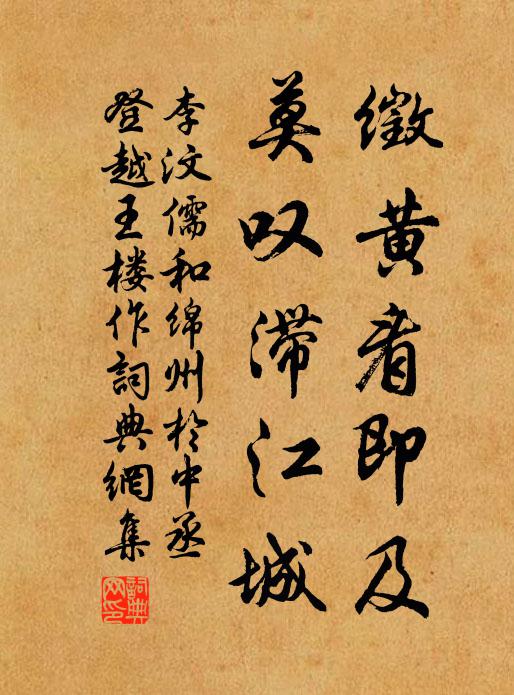 徵黄看即及
莫叹滞江城
李汶儒和绵州於中丞
登越王楼作詞典網集
詞典網印